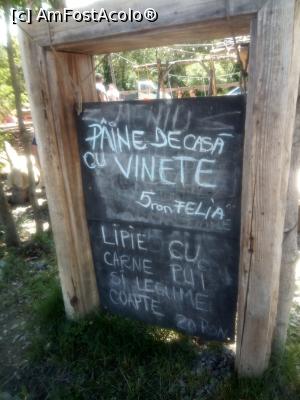 [c] AmFostAcolo®
MENIU
PÂINE DE CASĂ
CU VINETE
5 ron FELIA
LIPIE CU
CARNE PUI
SI LEGUME
COAPTE 20 RON